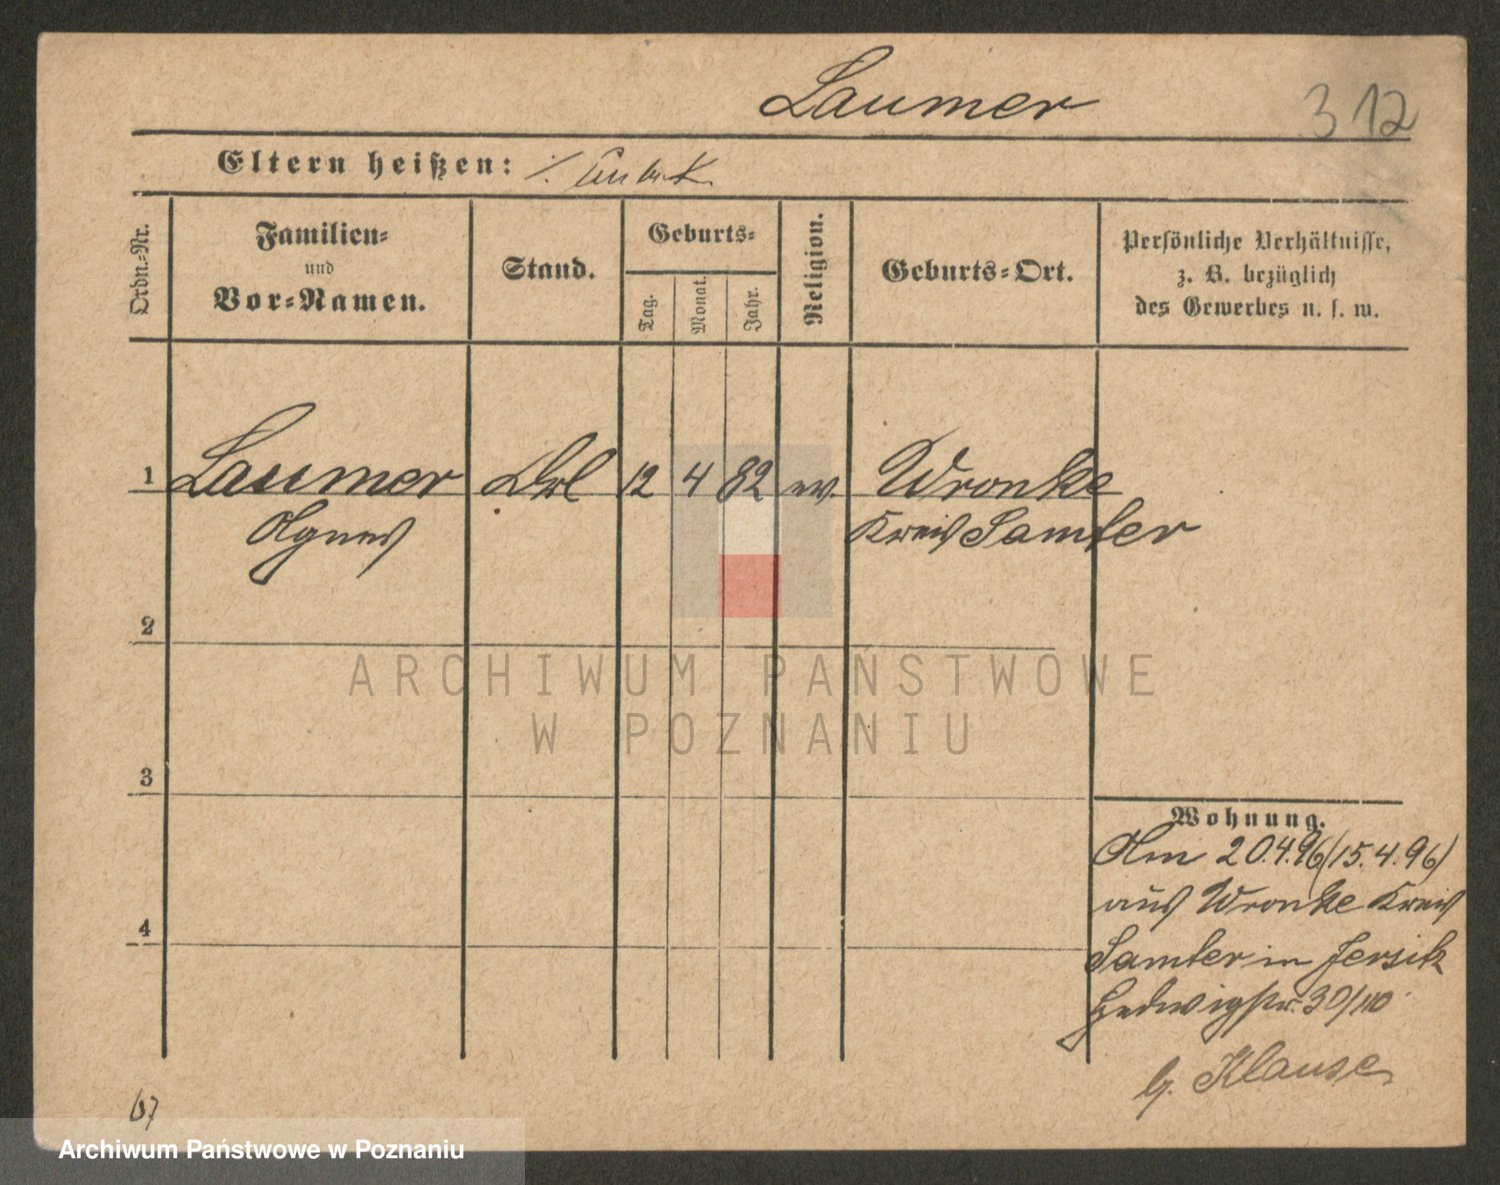 Laumer
312
Eltern heißen: ./. unbek.
Ordn.-Nr.
Familien-
und
Vor-Namen.
Stand.
Geburts-
Tag.
Monat.
Jahr.
Religion.
Geburts-Ort.
Persönliche Verhältnisse,
z. B. bezüglich
des Gewerbes u. s. w.
1 Laumer 12 4 82 ev. Wronke
Agnes Kreis Samter
2
ARCHIWUM PAŃSTWOWE
W POZNANIU
3
Wohnung.
Am 20.4.96 (15.4.96)
aus Wronke Kreis
4
Samter in Jersitz
Hedwigstr. 30/III
b. Klause
67
Archiwum Państwowe w Poznaniu